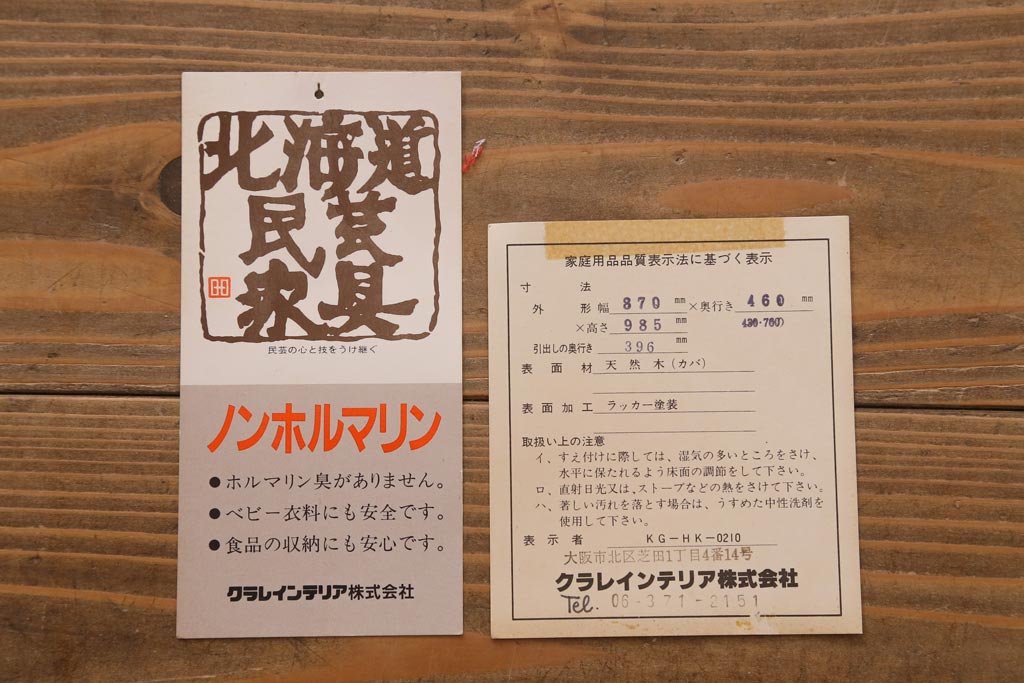 北海道
民芸
家具
民芸の心と技をうけ継ぐ
ノンホルマリン
●ホルマリン臭がありません。
●ベビー衣料にも安全です。
●食品の収納にも安心です。
クラレインテリア株式会社
家庭用品品質表示法に基づく表示
寸法
外形 幅 870 mm ×奥行き 460 mm
×高さ 985 mm 430・760)
引出しの奥行き 396 mm
表面材 天然木(カバ)
表面加工 ラッカー塗装
取扱い上の注意
イ、すえ付けに際しては、湿気の多いところをさけ、
水平に保たれるよう床面の調節をして下さい。
ロ、直射日光又は、ストーブなどの熱をさけて下さい。
ハ、著しい汚れを落とす場合は、うすめた中性洗剤を
使用して下さい。
表示者 KG-HK-0210
大阪市北区芝田1丁目4番14号
クラレインテリア株式会社
Tel. 06-371-2151